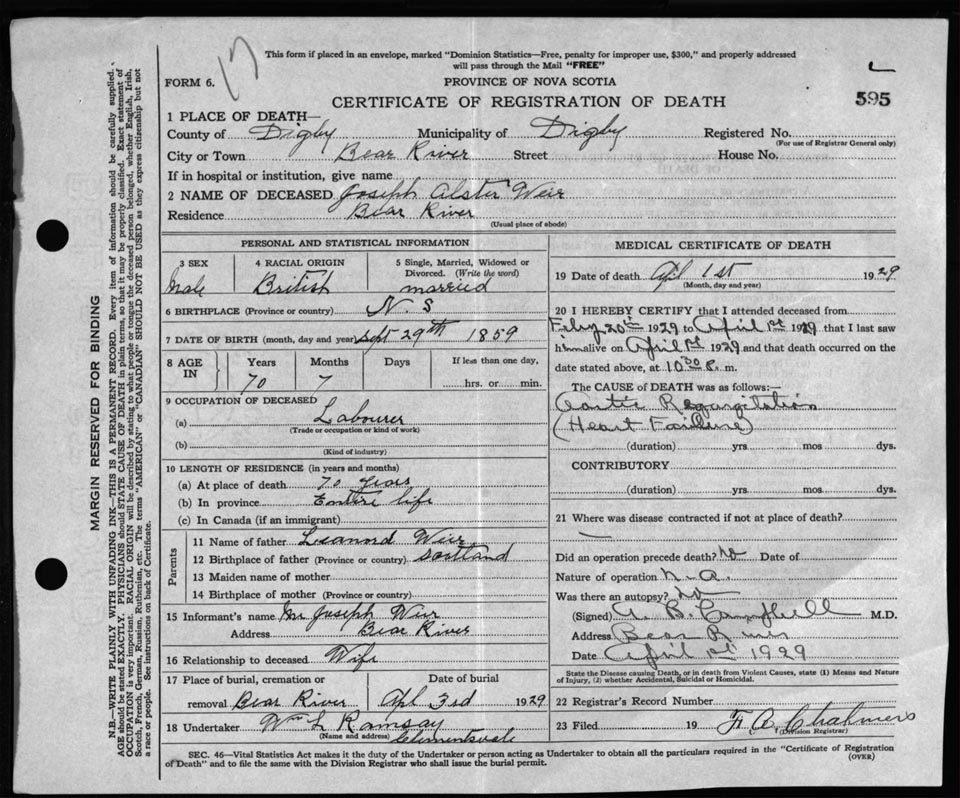 17
This form if placed in an envelope, marked "Dominion Statistics—Free, penalty for improper use, $300," and properly addressed
will pass through the Mail "FREE"
FORM 6.
PROVINCE OF NOVA SCOTIA
CERTIFICATE OF REGISTRATION OF DEATH
595
1 PLACE OF DEATH—
County of Digby Municipality of Digby Registered No.
(For use of Registrar General only)
City or Town Bear River Street House No.
If in hospital or institution, give name
2 NAME OF DECEASED Joseph Alster Weir
Residence Bear River
(Usual place of abode)
PERSONAL AND STATISTICAL INFORMATION
3 SEX 4 RACIAL ORIGIN 5 Single, Married, Widowed or
Divorced. (Write the word)
Male British married
6 BIRTHPLACE (Province or country) N. S
7 DATE OF BIRTH (month, day and year) Sept 29th 1859
8 AGE IN Years Months Days If less than one day,
70 7 hrs. or min.
9 OCCUPATION OF DECEASED
(a) Labourer
(Trade or occupation or kind of work)
(b)
(Kind of industry)
10 LENGTH OF RESIDENCE (in years and months)
(a) At place of death 70 years
(b) In province Entire life
(c) In Canada (if an immigrant)
Parents
11 Name of father Leanord Weir
12 Birthplace of father (Province or country) Scottland
13 Maiden name of mother
14 Birthplace of mother (Province or country)
15 Informant's name Mr Joseph Weir
Address Bear River
16 Relationship to deceased Wife
17 Place of burial, cremation or Date of burial
removal Bear River Apl 3rd 1929
18 Undertaker Wm L Ramsay
(Name and address) Clementsvale
MEDICAL CERTIFICATE OF DEATH
19 Date of death Apl 1st 1929
(Month, day and year)
20 I HEREBY CERTIFY that I attended deceased from
Feby 20th 1929 to April 1st 1929 that I last saw
him alive on April 1st 1929 and that death occurred on the
date stated above, at 10 30 P. m.
The CAUSE OF DEATH was as follows:—
Aortic Regurgitation
(Heart Failure)
(duration) yrs mos dys.
CONTRIBUTORY
(duration) yrs mos dys.
21 Where was disease contracted if not at place of death?
—
Did an operation precede death? No Date of
Nature of operation N-a.
Was there an autopsy? No
(Signed) A. B. Campbell M.D.
Address Bear River
Date April 1st 1929
State the Disease causing Death, or in death from Violent Causes, state (1) Means and Nature
of Injury, (2) whether Accidental, Suicidal or Homicidal.
22 Registrar's Record Number
23 Filed 19 F. A. Chalmers
(Division Registrar)
SEC. 46—Vital Statistics Act makes it the duty of the Undertaker or person acting as Undertaker to obtain all the particulars required in the "Certificate of Registration
of Death" and to file the same with the Division Registrar who shall issue the burial permit.
(OVER)
MARGIN RESERVED FOR BINDING
N.B.—WRITE PLAINLY WITH UNFADING INK—THIS IS A PERMANENT RECORD. Every item of information should be carefully supplied.
AGE should be stated EXACTLY. PHYSICIANS should STATE CAUSE OF DEATH in plain terms, so that it may be properly classified. Exact statement of
OCCUPATION is very important. RACIAL ORIGIN will be described by stating to what people or tongue the deceased person belonged, whether English, Irish,
Scotch, French, German, Russian, Ruthenian, etc. The terms "AMERICAN" or "CANADIAN" SHOULD NOT BE USED as they express citizenship but not
a race or people. See instructions on back of Certificate.